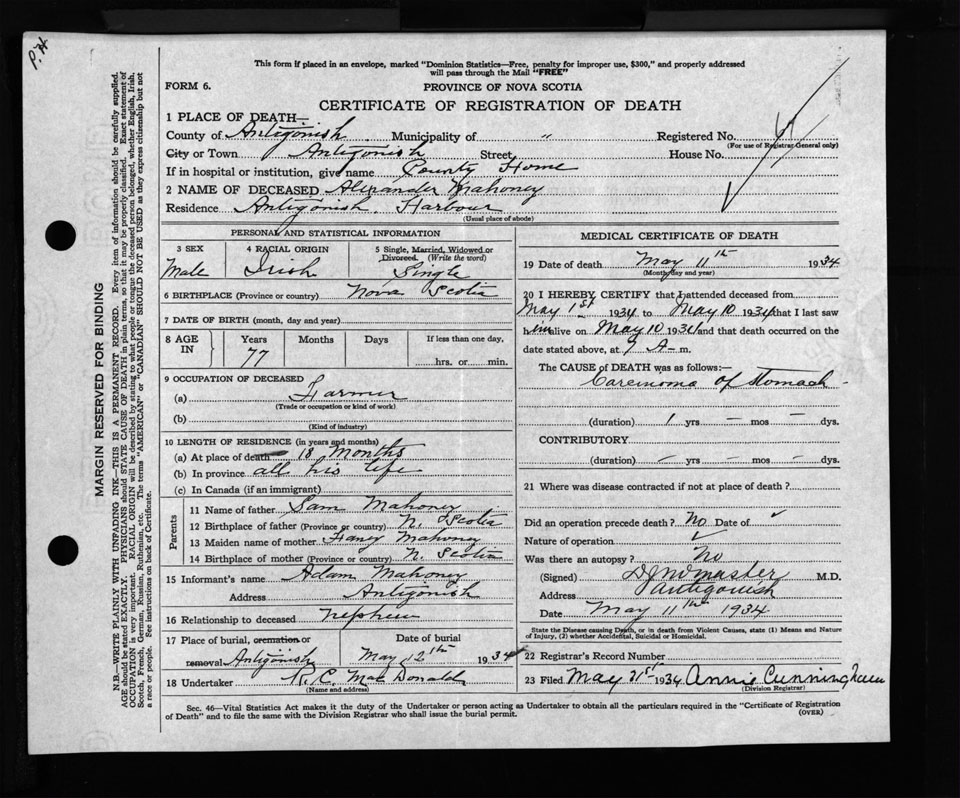 P.H
This form if placed in an envelope, marked "Dominion Statistics—Free, penalty for improper use, $300," and properly addressed
will pass through the Mail "FREE"
FORM 6.
PROVINCE OF NOVA SCOTIA
CERTIFICATE OF REGISTRATION OF DEATH
1 PLACE OF DEATH—
County of Antigonish Municipality of " Registered No.
(For use of Registrar General only)
City or Town Antigonish Street House No.
If in hospital or institution, give name County Home
2 NAME OF DECEASED Alexander Mahoney
Residence Antigonish Harbour
(Usual place of abode)
PERSONAL AND STATISTICAL INFORMATION
3 SEX 4 RACIAL ORIGIN 5 Single, Married, Widowed or
Divorced. (Write the word)
Male Irish Single
6 BIRTHPLACE (Province or country) Nova Scotia
7 DATE OF BIRTH (month, day and year)
8 AGE IN Years Months Days If less than one day,
77 hrs. or min.
9 OCCUPATION OF DECEASED
(a) Farmer
(Trade or occupation or kind of work)
(b)
(Kind of industry)
10 LENGTH OF RESIDENCE (in years and months)
(a) At place of death 18 months
(b) In province all his life
(c) In Canada (if an immigrant)
Parents
11 Name of father Sam Mahoney
12 Birthplace of father (Province or country) N. Scotia
13 Maiden name of mother Mahoney
14 Birthplace of mother (Province or country) N. Scotia
15 Informant's name Adam Mahoney
Address Antigonish
16 Relationship to deceased nephew
17 Place of burial, cremation or Date of burial
removal Antigonish May 12th 1934
18 Undertaker R. C. MacDonald
(Name and address)
MEDICAL CERTIFICATE OF DEATH
19 Date of death May 11th 1934
(Month day and year)
20 I HEREBY CERTIFY that I attended deceased from
May 1st 1934 to May 10 1934 that I last saw
him alive on May 10 1934 and that death occurred on the
date stated above, at 9 A- m.
The CAUSE of DEATH was as follows:—
Carcinoma of stomach
(duration) 1 yrs — mos — dys.
CONTRIBUTORY
(duration) — yrs — mos — dys.
21 Where was disease contracted if not at place of death?
Did an operation precede death? No Date of ✓
Nature of operation ✓
Was there an autopsy? No
(Signed) M.D.
Address Antigonish
Date May 11th 1934
State the Disease causing Death, or in death from Violent Causes, state (1) Means and Nature
of Injury, (2) whether Accidental, Suicidal or Homicidal.
22 Registrar's Record Number
23 Filed May 21st 1934 Annie Cunningham
(Division Registrar)
Sec. 46—Vital Statistics Act makes it the duty of the Undertaker or person acting as Undertaker to obtain all the particulars required in the "Certificate of Registration
of Death" and to file the same with the Division Registrar who shall issue the burial permit. (OVER)
MARGIN RESERVED FOR BINDING
N.B.—WRITE PLAINLY WITH UNFADING INK—THIS IS A PERMANENT RECORD. Every item of information should be carefully supplied.
AGE should be stated EXACTLY. PHYSICIANS should STATE CAUSE OF DEATH in plain terms, so that it may be properly classified. Exact statement of
OCCUPATION is very important. RACIAL ORIGIN will be described by stating to what people or tongue the deceased person belonged, whether English, Irish,
Scotch, French, German, Russian, Ruthenian, etc. The terms "AMERICAN" or "CANADIAN" SHOULD NOT BE USED as they express citizenship but not
a race or people. See instructions on back of Certificate.